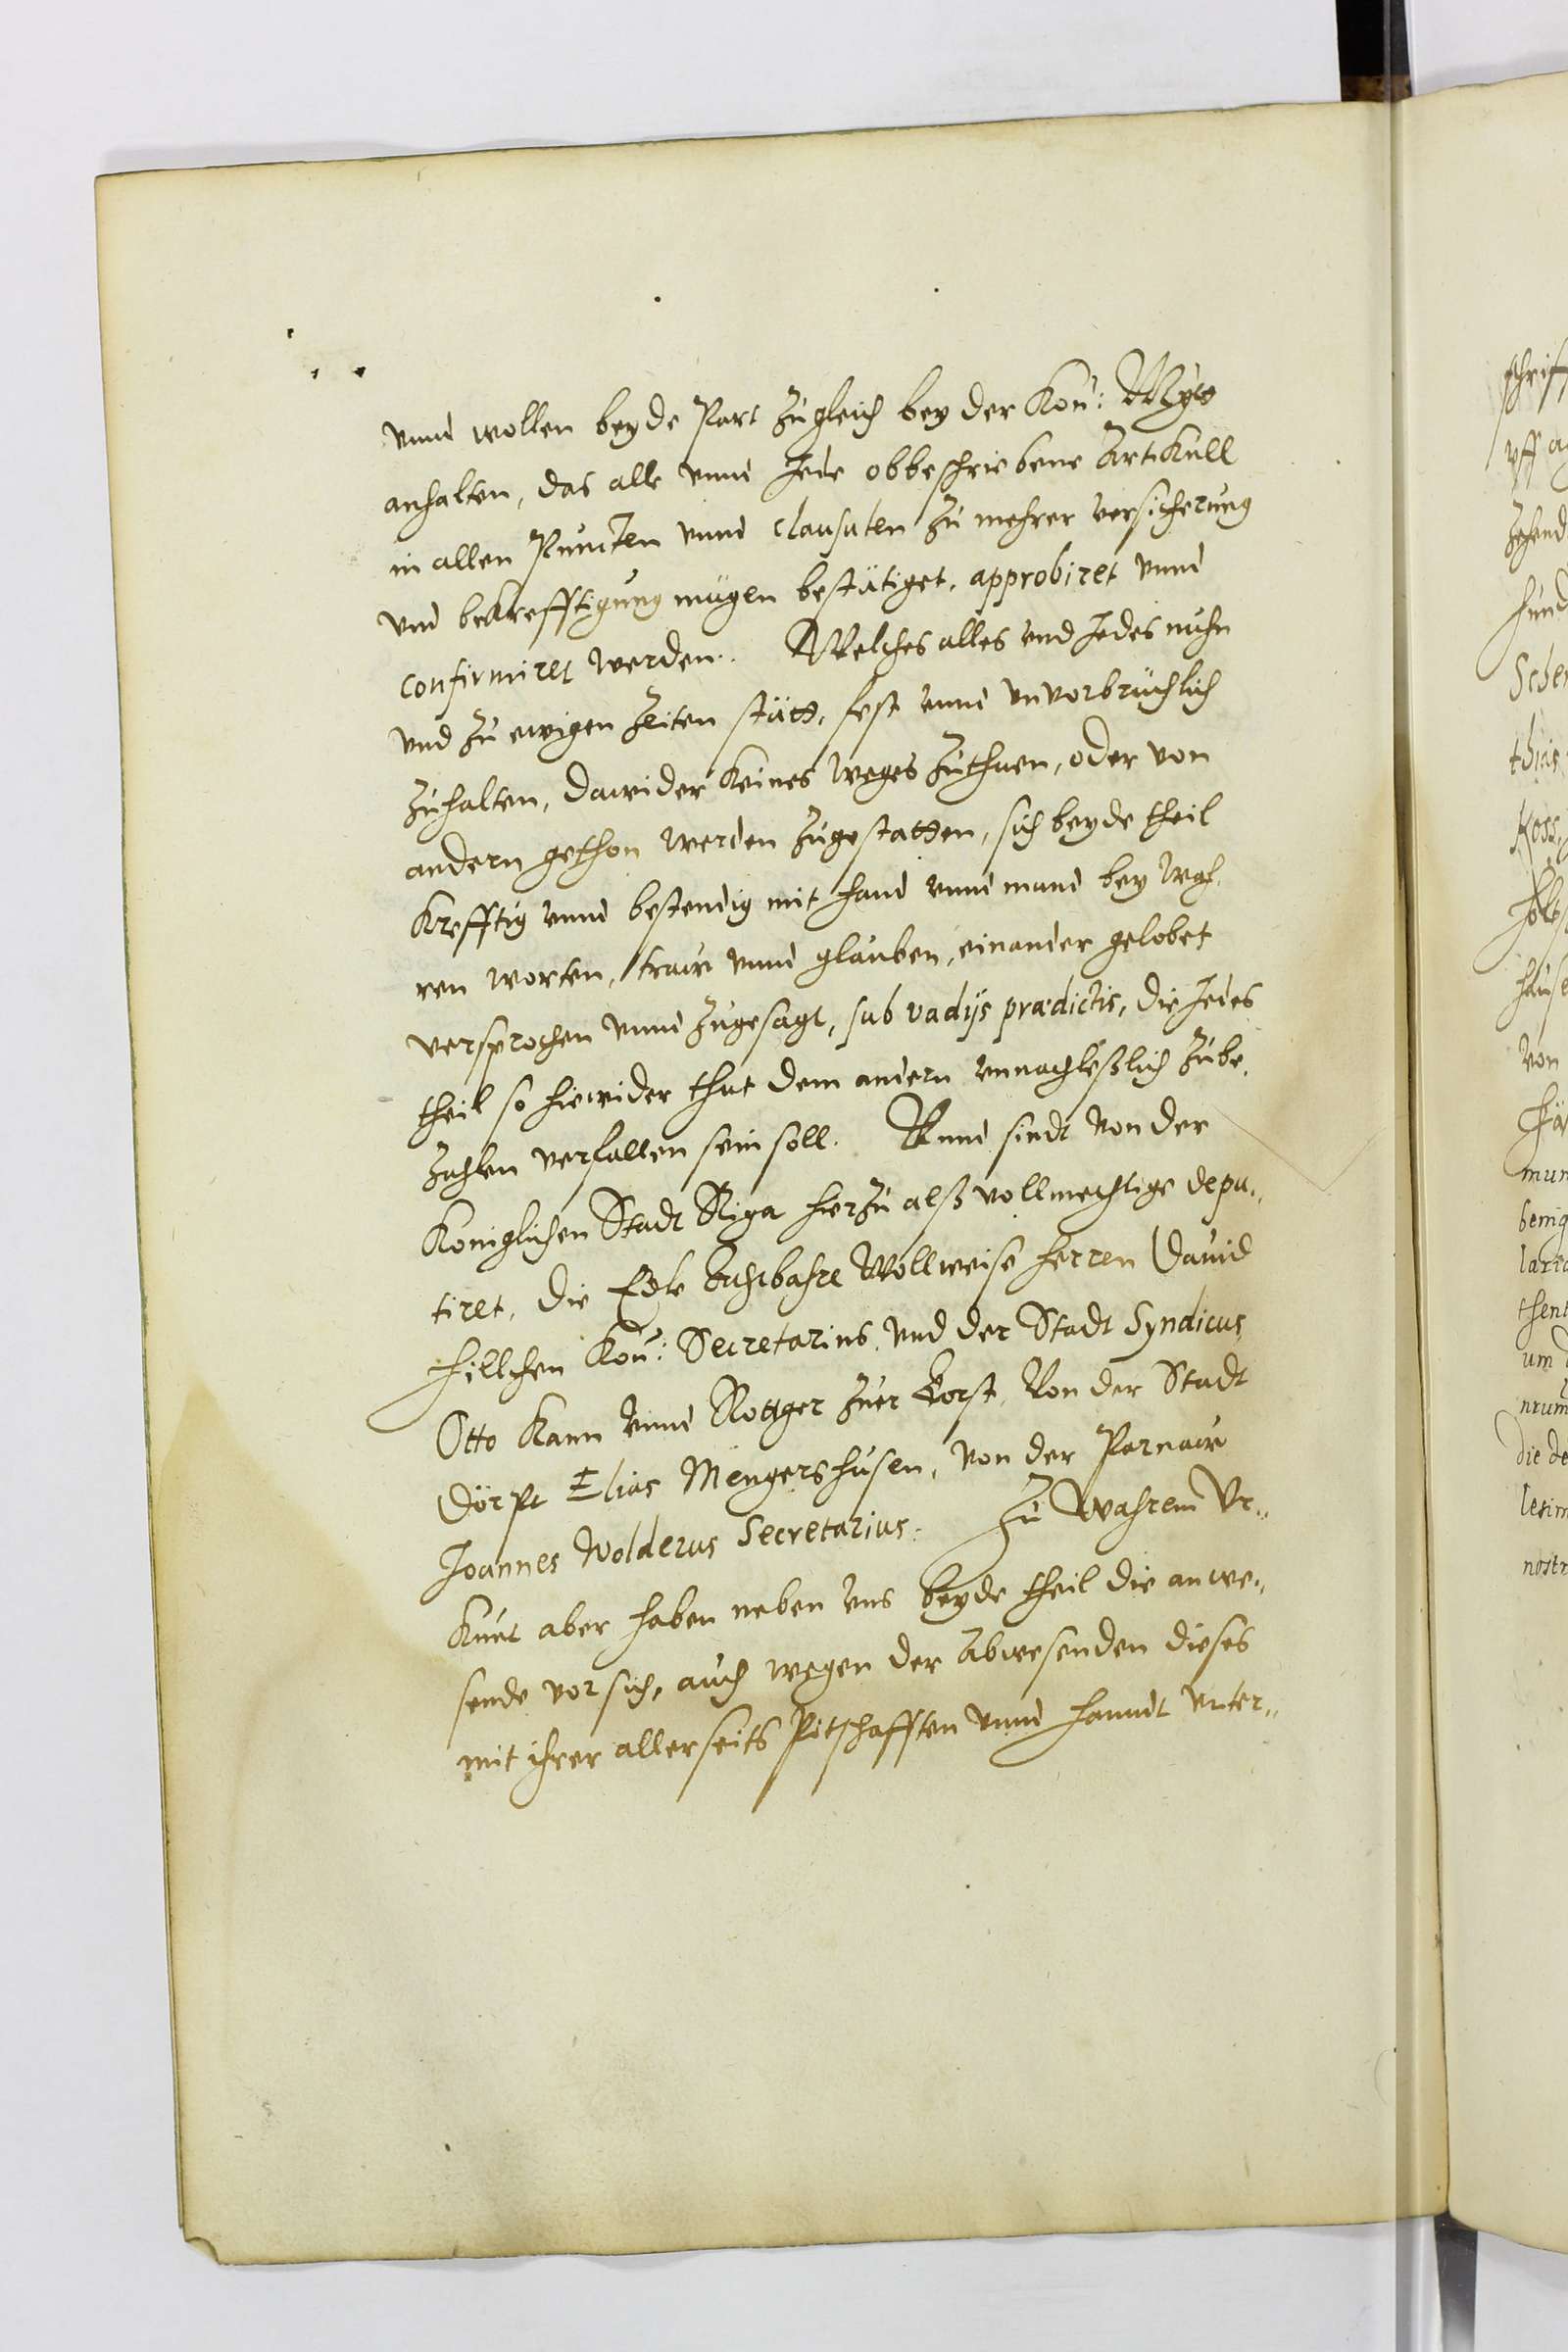 vnnd wollen beyde Part zugleich bey der Kön: Mytt
anhalten, das alle vnnd Jede obbeschriebene Artikull
in allen Puncten vnnd clausulen zu mehrer versicherung
vnd bekrefftigung mügen bestätiget, approbiret vnnd
confirmiret werden. Welches alles vnd Jedes nuhn
vnd zu ewigen Zeiten stätt, fest vnnd vnvorbrüchlich
zuhalten, dawider keines weges zuthuen, oder von
andern gethon werden zugestatten, sich beyde theil
krefftig vnnd bestendig mit hand vnnd mund bey wah,
ren worten, traw vnnd glauben, einander gelobet
versprochen vnnd zugesagt, sub vadijs prædictis, die Jedes
theil so hiewider thut dem andern vnnachleßlich zube,
zahlen verfallen sein soll. Vnnd sindt von der
Königlichen Stadt Riga hierzu alß vollmechtige depu„
tiret, die Edle Achtbahre Wollweise Herren Dauid
Hillchen Kön: Secretarius, vnd der Stadt Syndicus,
Otto Kann vnnd Rottger zur Horst, Von der Stadt
Dörpt Elias Mengershusen, von der Parnaw
Joannes Wolderus Secretarius. Zu wahrem Vr„
kunt aber haben neben vns beyde theil die anwe„
sende vor sich, auch wegen der Abwesenden dieses
mit ihrer allerseits Pitschafften vnnd handt vnter„
schriff
vff
von
nostr